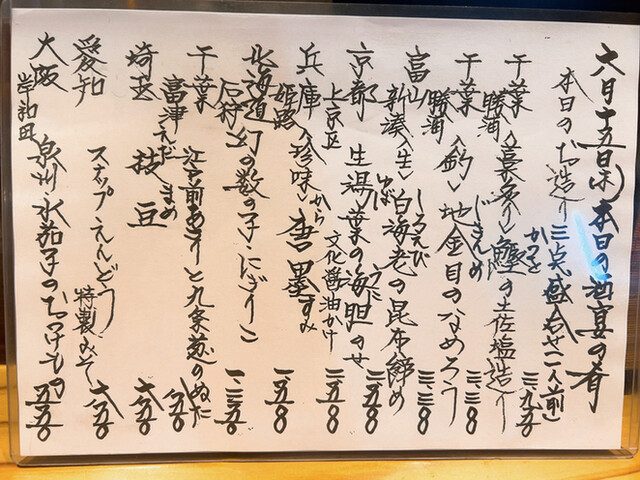 六月十五日(木)本日の酒宴の肴
本日のお造り三点盛合せ(一人前) 一、九五〇
千葉 勝浦 〈藁炙り〉鰹の土佐塩造り かつを
千葉 勝浦 〈釣〉地金目のなめろう じきんめ 一、三三〇
富山 新湊〈生〉白海老の昆布〆 しろえび
京都 上京区 生湯葉の海胆のせ ゆば うに
兵庫 姫路 〈珍味〉唐墨 からすみ 文化醤油かけ
北海道 石狩 幻の数の子にぎり 一、三五〇
千葉 富津 江戸前あさりと九条葱のぬた
埼玉 枝豆 えだまめ 六五〇
愛知 スナップえんどう 特製みそ 六五〇
大阪 岸和田 泉州水茄子のおつけもの 五五〇